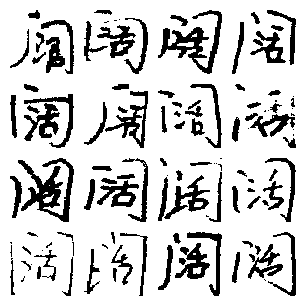 阔阔阔阔
阔阔阔阔
阔阔阔阔
阔阔阔阔